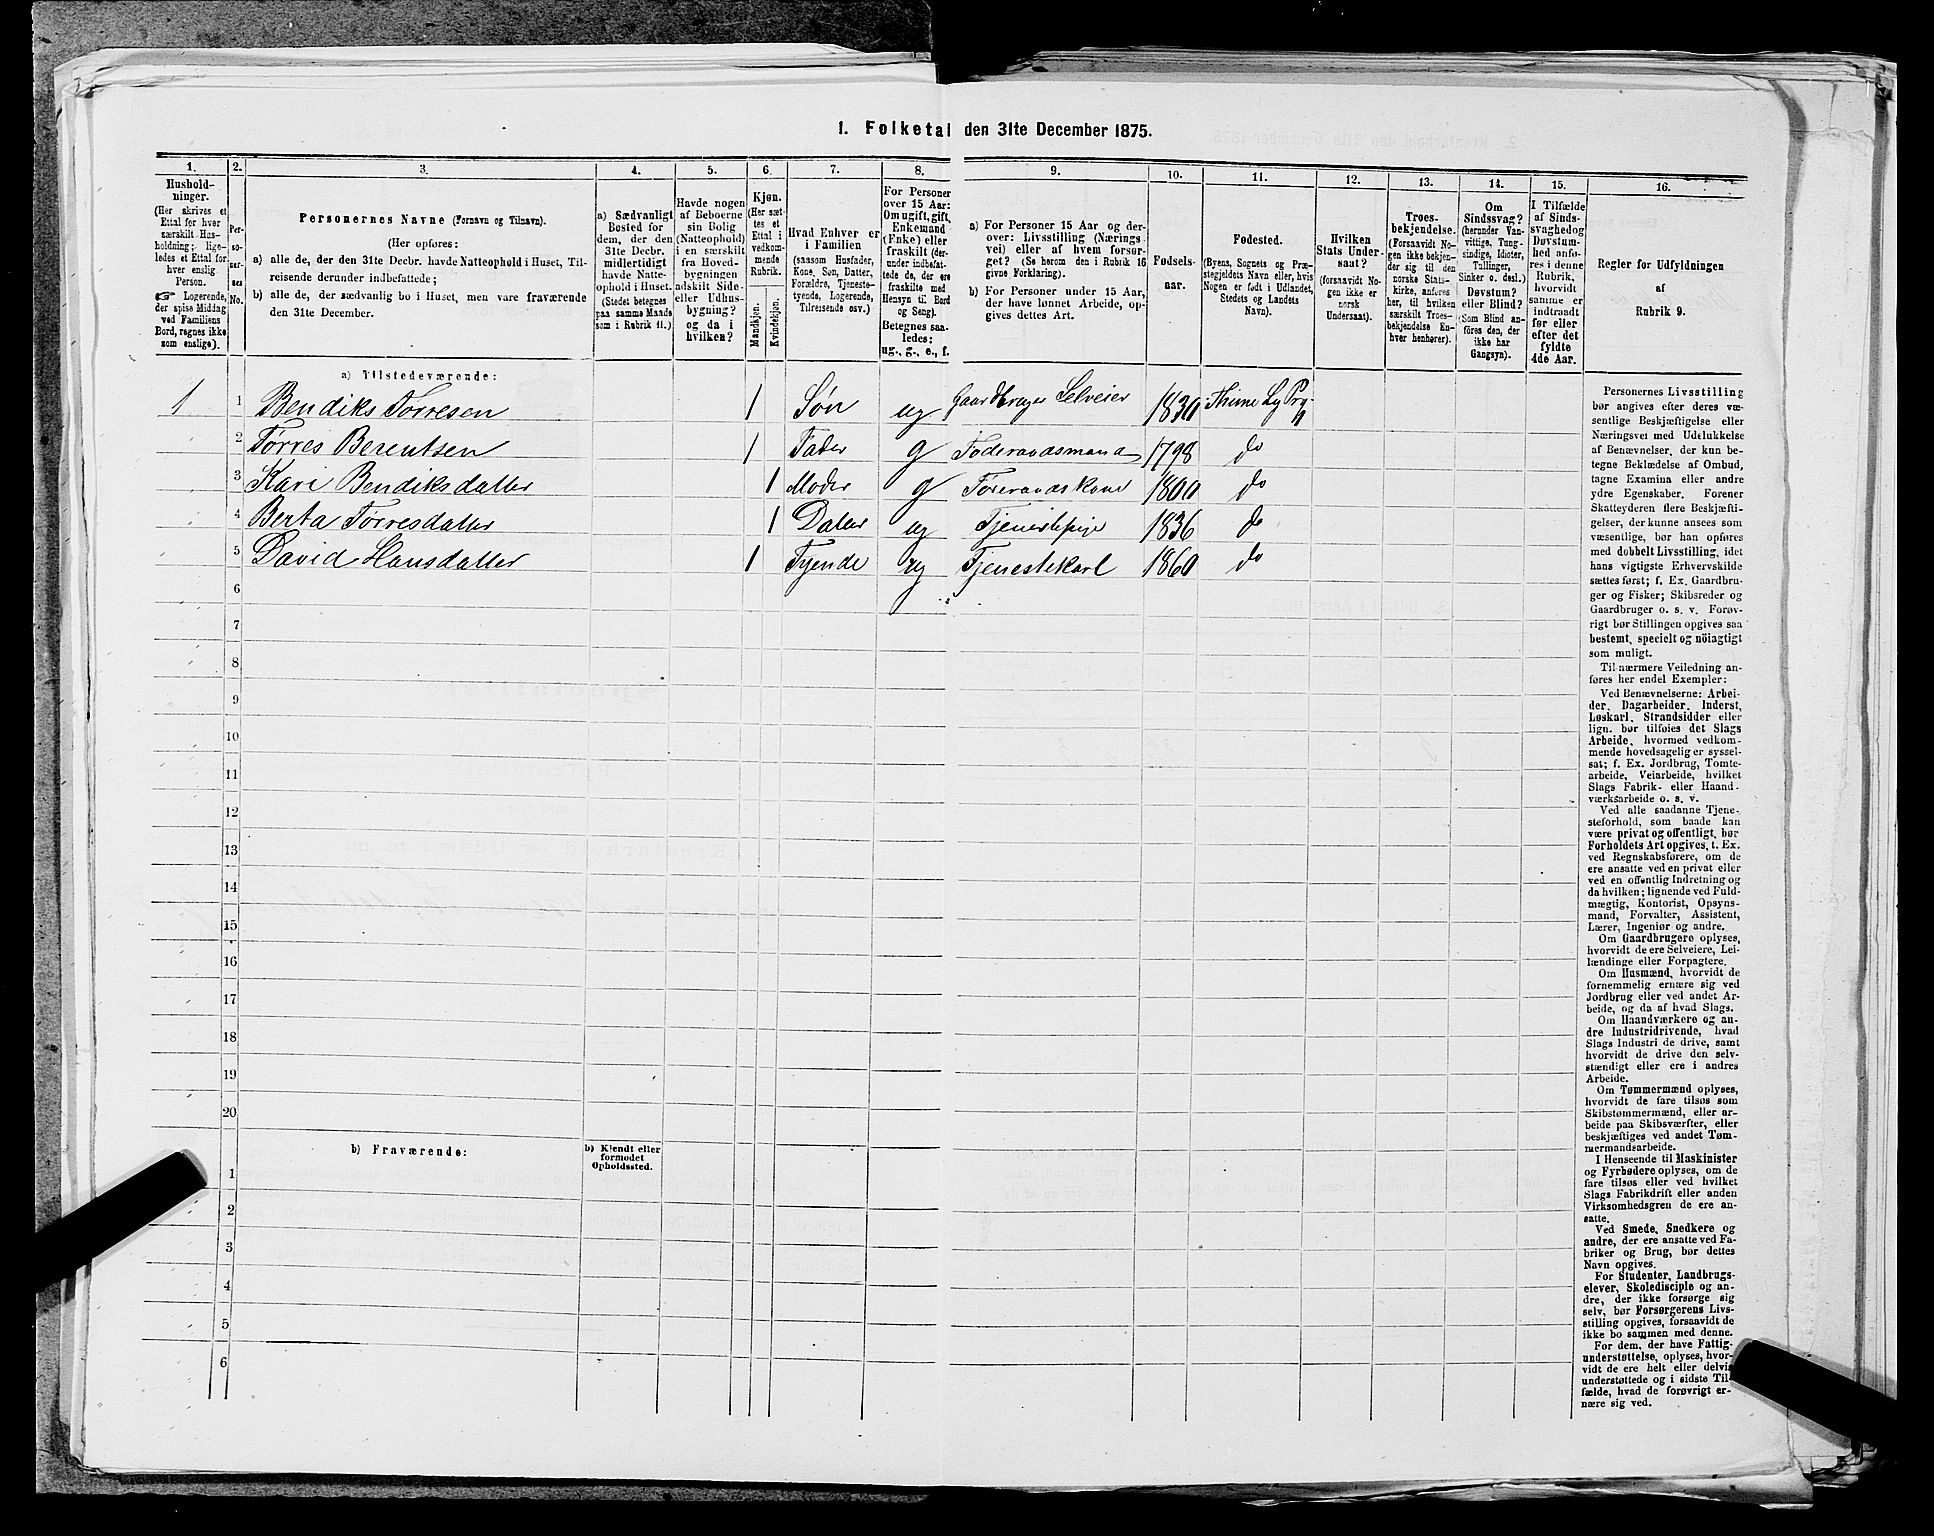 1. Folketal den 31te December 1875.
1. 2. 3. 4. 5. 6. 7. 8. 9. 10. 11. 12. 13. 14. 15. 16.
Hushold-
ninger.
(Her skrives et
Ettal for hver
særskilt Hus-
holdning; lige-
ledes et Ettal for
hver enslig
Person.
☞ Logerende,
der spise Middag
ved Familiens
Bord, regnes ikke
som enslige).
Per-
so-
ner-
nes
No.
Personernes Navne (Fornavn og Tilnavn).
(Her opføres:
a) alle de, der den 31te Decbr. havde Natteophold i Huset, Til-
reisende derunder indbefattede;
b) alle de, der sædvanlig bo i Huset, men vare fraværende
den 31te December.
a) Sædvanligt
Bosted for
dem, der den
31te Decbr.
midlertidigt
havde Natte-
ophold i Huset.
(Stedet betegnes
paa samme Maade
som i Rubrik 11.)
Havde nogen
af Beboerne
sin Bolig
(Natteophold)
i en særskilt
fra Hoved-
bygningen
adskilt Side-
eller Udhus-
bygning?
og da i
hvilken?
Kjøn.
(Her sæt-
tes et
Ettal i
vedkom-
mende
Rubrik.
Mandkjøn.
Kvindekjøn.
Hvad Enhver er
i Familien
(saasom Husfader,
Kone, Søn, Datter,
Forældre, Tjeneste-
tyende, Logerende,
Tilreisende osv.)
For Personer
over 15 Aar:
Om ugift, gift,
Enkemand
(Enke) eller
fraskilt (der-
under indbefat-
tede de, der ere
fraskilte med
Hensyn til Bord
og Seng).
Betegnes saa-
ledes:
ug., g., e., f.
a) For Personer 15 Aar og der-
over: Livsstilling (Nærings-
vei) eller af hvem forsør-
get? (Se herom den i Rubrik 16
givne Forklaring).
b) For Personer under 15 Aar,
der have lønnet Arbeide, op-
gives dettes Art.
Fødsels-
aar.
Fødested.
(Byens, Sognets og Præ-
stegjeldets Navn eller, hvis
Nogen er født i Udlandet,
Stedets og Landets
Navn).
Hvilken
Stats Under-
saat?
(forsaavidt No-
gen ikke er
norsk
Undersaat).
Troes-
bekjendelse.
(Forsaavidt No-
gen ikke bekjen-
der sig til den
norske Stats-
kirke, anføres
her, til hvilken
særskilt Troes-
bekjendelse En-
hver henhører).
Om
Sindssvag?
(herunder Van-
vittige, Tung-
sindige, Idioter,
Tullinger,
Sinker o. desl.)
Døvstum?
eller Blind?
(Som Blind an-
føres den, der
ikke har
Gangsyn).
I Tilfælde
af Sinds-
svaghed og
Døvstum-
hed anfø-
res i denne
Rubrik,
hvorvidt
samme er
indtraadt
før eller
efter det
fyldte
4de Aar.
Regler for Udfyldningen
af
Rubrik 9.
a) Tilstedeværende:
1 1 Bendiks Torresen 1 Søn ug Gaardbruger Selveier 1830 Thime Ly Prg.
2 Torres Berentsen 1 Fader g Foderaadsmand 1798 do
3 Kari Bendiksdatter 1 Moder g Føreraadskone 1800 do
4 Berta Torresdatter 1 Datter ug Tjenestepige 1836 do
5 David Hansdatter 1 Tyende ug Tjenestekarl 1860 do
6
7
8
9
10
11
12
13
14
15
16
17
18
19
20
b) Fraværende:
b) Kjendt eller
formodet
Opholdssted.
1
2
3
4
5
6
Personernes Livsstilling
bør angives efter deres væ-
sentlige Beskjæftigelse eller
Næringsvei med Udelukkelse
af Benævnelser, der kun be-
tegne Beklædelse af Ombud,
tagne Examina eller andre
ydre Egenskaber. Forener
Skatteyderen flere Beskjæfti-
gelser, der kunne ansees som
væsentlige, bør han opføres
med dobbelt Livsstilling, idet
hans vigtigste Erhvervskilde
sættes først; f. Ex. Gaardbru-
ger og Fisker; Skibsreder og
Gaardbruger o. s. v. Forøv-
rigt bør Stillingen opgives saa
bestemt, specielt og nöiagtigt
som muligt.
Til nærmere Veiledning an-
føres her endel Exempler:
Ved Benævnelserne: Arbei-
der, Dagarbeider, Inderst,
Løskarl, Strandsidder eller
lign. bør tilføies det Slags
Arbeide, hvormed vedkom-
mende hovedsagelig er syssel-
sat; f. Ex. Jordbrug, Tomte-
arbeide, Veiarbeide, hvilket
Slags Fabrik- eller Haand-
værksarbeide o. s. v.
Ved alle saadanne Tjene-
steforhold, som baade kan
være privat og offentligt, bør
Forholdets Art opgives, t. Ex.
ved Regnskabsførere, om de
ere ansatte ved en privat eller
ved en offentlig Indretning og
da hvilken; lignende ved Fuld-
mægtig, Kontorist, Opsyns-
mand, Forvalter, Assistent,
Lærer, Ingeniør og andre.
Om Gaardbrugere oplyses,
hvorvidt de ere Selveiere, Lei-
lændinge eller Forpagtere.
Om Husmænd, hvorvidt de
fornemmelig ernære sig ved
Jordbrug eller ved andet Ar-
beide, og da af hvad Slags.
Om Haandværkere og an-
dre Industridrivende, hvad
Slags Industri de drive, samt
hvorvidt de drive den selv-
stændigt eller ere i andres
Arbeide.
Om Tømmermænd oplyses,
hvorvidt de fare tilsøs som
Skibstømmermænd, eller ar-
beide paa Skibsværfter, eller
beskjæftiges ved andet Tøm-
mermandsarbeide.
I Henseende til Maskinister
og Fyrbødere oplyses, om de
fare tilsøs eller ved hvilket
Slags Fabrikdrift eller anden
Virksomhedsgren de ere an-
satte.
Ved Smede, Snedkere og
andre, der ere ansatte ved Fa-
briker og Brug, bør dettes
Navn opgives.
For Studenter, Landbrugs-
elever, Skoledisciple og an-
dre, der ikke forsørge sig
selv, bør Forsørgerens Livs-
stilling opgives, forsaavidt de
ikke bo sammen med denne.
For dem, der have Fattig-
understøttelse, oplyses, hvor-
vidt de ere helt eller delvis
understøttede og i sidste Til-
fælde, hvad de forøvrigt er-
nære sig ved.